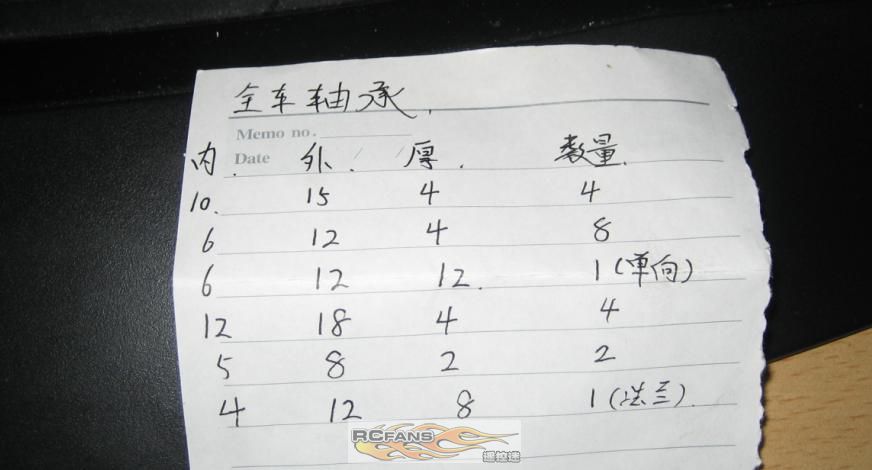 全车轴承.
Memo no.
Date
内. 外. 厚. 数量.
10. 15 4 4
6 12 4 8
6 12 12. 1(单向)
12 18 4 4
5 8 2 2
4 12 8 1(法兰).
RCFANS
遥控迷